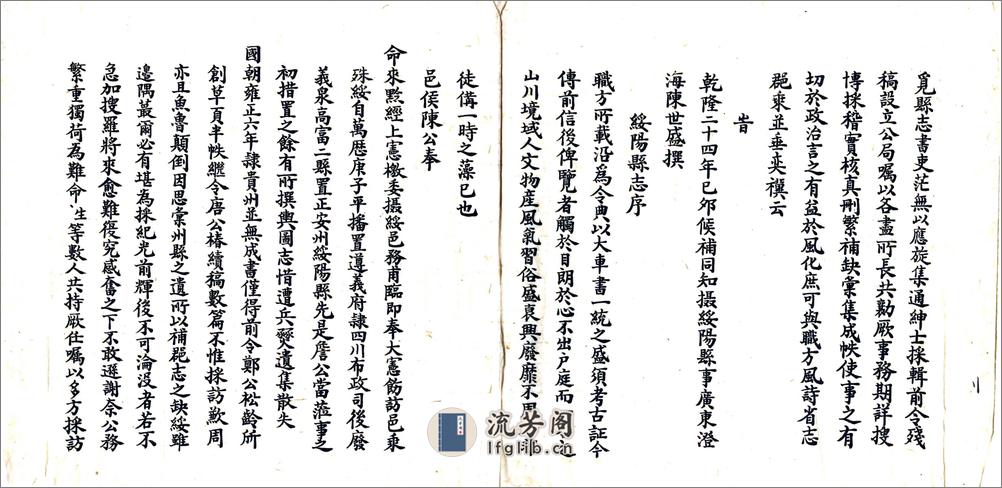 覓縣志書吏茫無以應旋集通紳士採輯前令殘
稿設立公局嘱以各盡所長共勷厥事務期詳搜
博採稽實核真刪繁補缺彙集成帙使事之有
切於政治言之有益於風化庶可與職方風詩省志
郡乘並垂奕禩云
旹
乾隆二十四年已夘候補同知攝綏陽縣事廣東澄
海陳世盛撰
綏陽縣志序
職方所載沿為令典以大車書一統之盛須考古証今
傳前信後俾覽者觸於目朗於心不出户庭而
山川境域人文物産風氣習俗盛衰興廢靡不周
徒備一時之藻已也
邑侯陳公奉
命來黔經上憲檄委摄綏邑務甫臨即奉大憲飭訪邑乘
殊綏自萬歴庚子平播置遵義府隷四川布政司後廢
義泉高富二縣置正安州綏陽縣先是詹公當蒞事之
初措置之餘有所撰輿圖志惜遭兵燹遺集散失
國朝雍正六年隷貴州並無成書僅得前令鄭公松齡所
創草頁半帙繼令唐公椿續稿數篇不惟採訪歉周
亦且魚魯顛倒因思彙州縣之遺所以補郡志之缺綏雖
邊隅蕞爾必有堪為採紀光前輝後不可淪没者若不
急加搜羅將來愈難復究感奮之下不敢遜謝奈公務
繁重獨荷為難命生等數人共持厥任嘱以多方採訪
流芳阁
lfglib.com